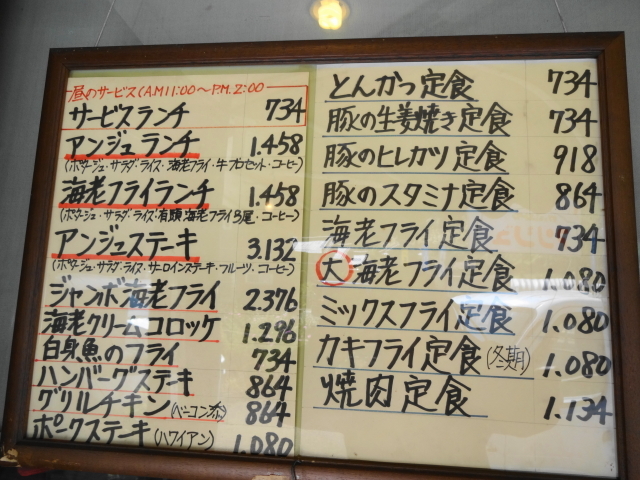 昼のサービス(A.M 11:00〜P.M. 2:00
サービスランチ 734
アンジュランチ 1.458
(ポタージュ・サラダ・ライス・海老フライ・牛ブロセット・コーヒー)
海老フライランチ 1.458
(ポタージュ・サラダ・ライス・有頭海老フライ3尾・コーヒー)
アンジュステーキ 3.132
(ポタージュ・サラダ・ライス・サーロインステーキ・フルーツ・コーヒー)
ジャンボ海老フライ 2.376
海老クリームコロッケ 1.296
白身魚のフライ 734
ハンバーグステーキ 864
グリルチキン(ベーコン添) 864
ポークステーキ(ハワイアン) 1.080
とんかつ定食 734
豚の生姜焼き定食 734
豚のヒレカツ定食 918
豚のスタミナ定食 864
海老フライ定食 734
大海老フライ定食 1.080
ミックスフライ定食 1.080
カキフライ定食(冬期) 1.080
焼肉定食 1.134